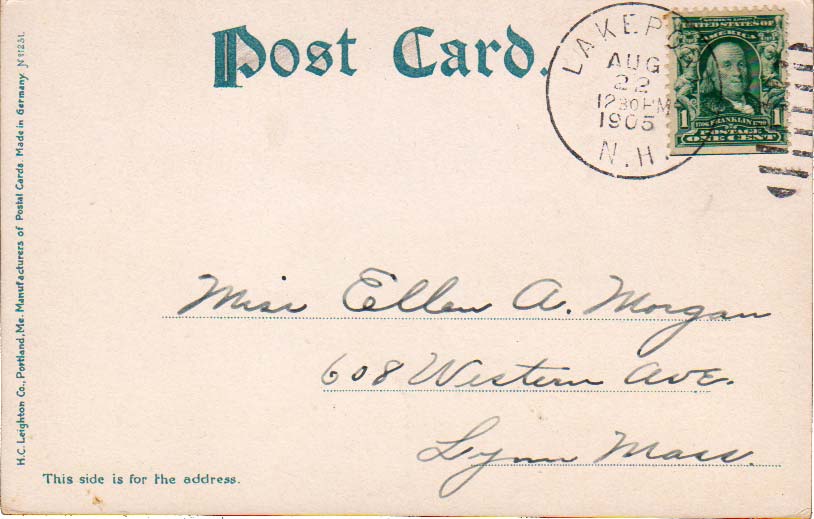 Post Card.
LAKEPO
AUG
22
1230 PM
1905
N.H.
SERIES 1902
UNITED STATES OF
AMERICA
1706 FRANKLIN 1790
1 1
POSTAGE
ONE CENT
Miss Ellen A. Morgan
608 Western Ave.
Lynn Mass.
This side is for the address.
H.C. Leighton Co., Portland, Me. Manufacturers of Postal Cards. Made in Germany № 1231.